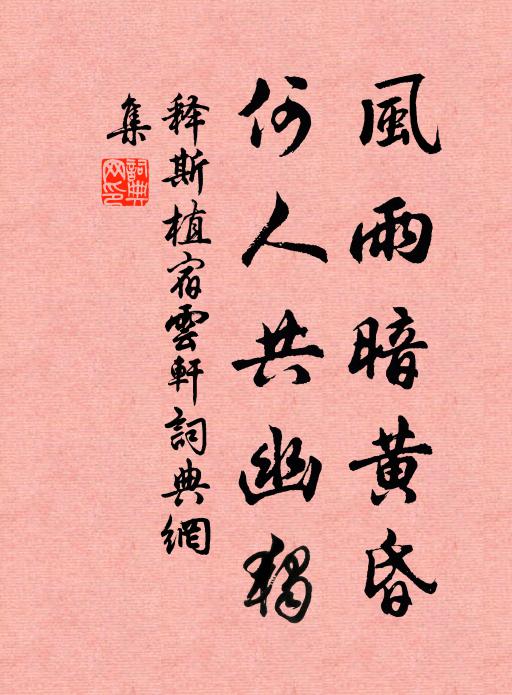 風雨暗黄昏
何人共幽獨
释斯植宿雲軒詞典網
集
詞典网印